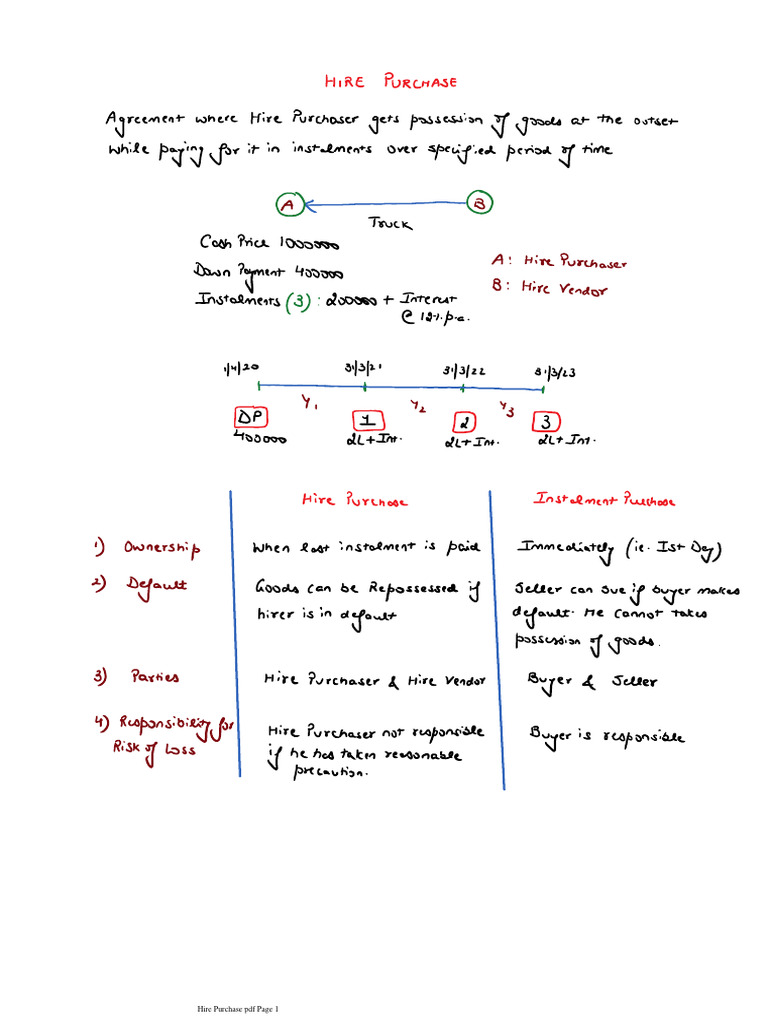 HIRE PURCHASE
Agreement where Hire Purchaser gets possession of goods at the outset
while paying for it in instalments over specified period of time
A B
Truck
Cash Price 1000000
Down Payment 400000
Instalments (3) : 200000 + Interest
@ 12%. p.a.
A : Hire Purchaser
B : Hire Vendor
1/4/20 31/3/21 31/3/22 31/3/23
Y1 Y2 Y3
DP 1 2 3
400000 2L+Int. 2L+Int. 2L+Int.
Hire Purchase Instalment Purchase
1) Ownership When last instalment is paid Immediately (ie. Ist Day)
2) Default Goods can be Repossessed if Seller can sue if buyer makes
hirer is in default default. He cannot takes
possession of goods.
3) Parties Hire Purchaser & Hire Vendor Buyer & Seller
4) Responsibility for Hire Purchaser not responsible Buyer is responsible
Risk of Loss if he has taken reasonable
precaution.
Hire Purchase pdf Page 1